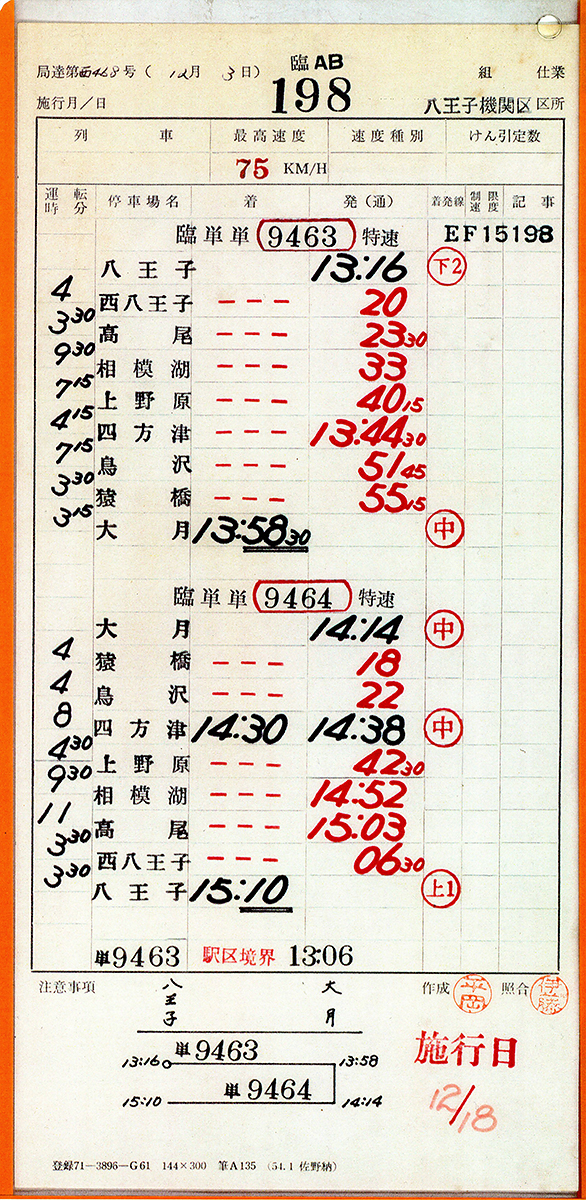 臨AB
局達第西468号 ( 12月 3日) 198 組 仕業
施行月/日 八王子機関区 区所
列 車 最高速度 速度種別 けん引定数
75 KM/H
運転時分 停車場名 着 発(通) 着発線 制限速度 記事
臨単単 9463 特速 EF15198
八王子 13:16 下2
4
西八王子 --- 20
3 30
高尾 --- 23 30
9 30
相模湖 --- 33
7 15
上野原 --- 40 15
4 15
四方津 --- 13:44 30
7 15
鳥沢 --- 51 45
3 30
猿橋 --- 55 15
3 15
大月 13:58 30 中
臨単単 9464 特速
大月 14:14 中
4
猿橋 --- 18
4
鳥沢 --- 22
8
四方津 14:30 14:38 中
4 30
上野原 --- 42 30
9 30
相模湖 --- 14:52
11
高尾 --- 15:03
3 30
西八王子 --- 06 30
3 30
八王子 15:10 上1
単9463 駅区境界 13:06
注意事項 八王子 大月 作成 平岡 照合 伊藤
単9463
13:16 13:58
単9464
15:10 14:14
施行日
12/18
登録71-3896-G61 144×300 筆A135 (54.1 佐野納)